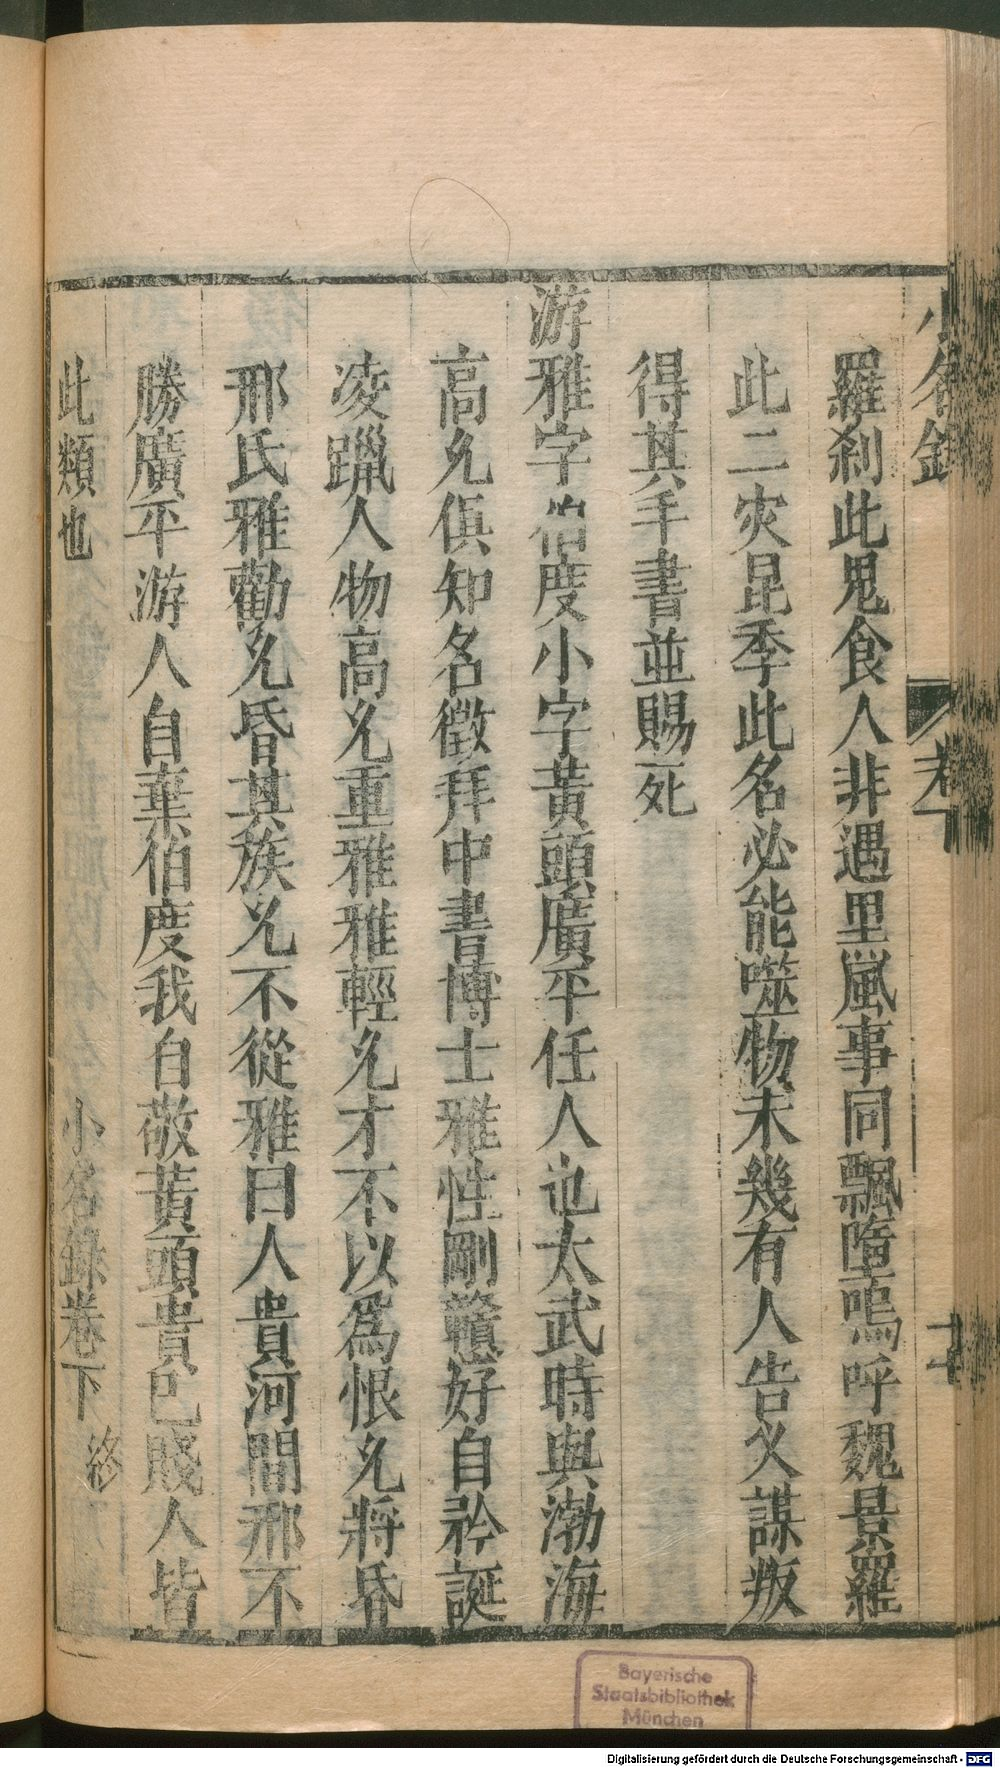 小名錄
卷下
羅刹此鬼食人非遇里嵐事同飄墮嗚呼魏景羅
此二灾昆季此名必能噬物未幾有人告乂謀叛
得其手書並賜死
游雅字伯度小字黃頭廣平任人也太武時與渤海
高允俱知名徵拜中書博士雅性剛戇好自矜誕
凌躐人物高允重雅雅輕允才不以爲恨允將昏
邢氏雅勸允昏其族允不從雅曰人貴河間邢不
勝廣平游人自棄伯度我自敬黃頭貴已賤人皆
此類也
小名錄卷下 終
Bayerische
Staatsbibliothek
München
Digitalisierung gefördert durch die Deutsche Forschungsgemeinschaft - DFG